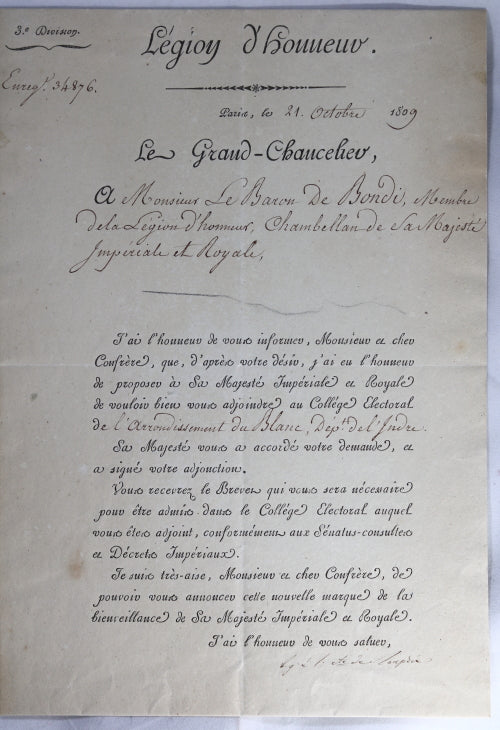 3.e Division.
Légion d'honneur.
Enreg.t 34876.
Paris, le 21. Octobre 1809
Le Grand-Chancelier,
A Monsieur Le Baron De Bondi, Membre
de la Légion d'honneur, Chambellan de Sa Majesté
Impériale et Royale,
J'ai l'honneur de vous informer, Monsieur et cher
Confrère, que, d'après votre désir, j'ai eu l'honneur
de proposer à Sa Majesté Impériale et Royale
de vouloir bien vous adjoindre au Collége Electoral
de l'Arrondissement du Blanc, Dép.t de l'Indre.
Sa Majesté vous a accordé votre demande, et
a signé votre adjonction.
Vous recevrez le Brevet qui vous sera nécessaire
pour être admis dans le Collége Electoral auquel
vous êtes adjoint, conformément aux Sénatus-consultes
et Décrets Impériaux.
Je suis très-aise, Monsieur et cher Confrère, de
pouvoir vous annoncer cette nouvelle marque de la
bienveillance de Sa Majesté Impériale et Royale.
J'ai l'honneur de vous saluer,